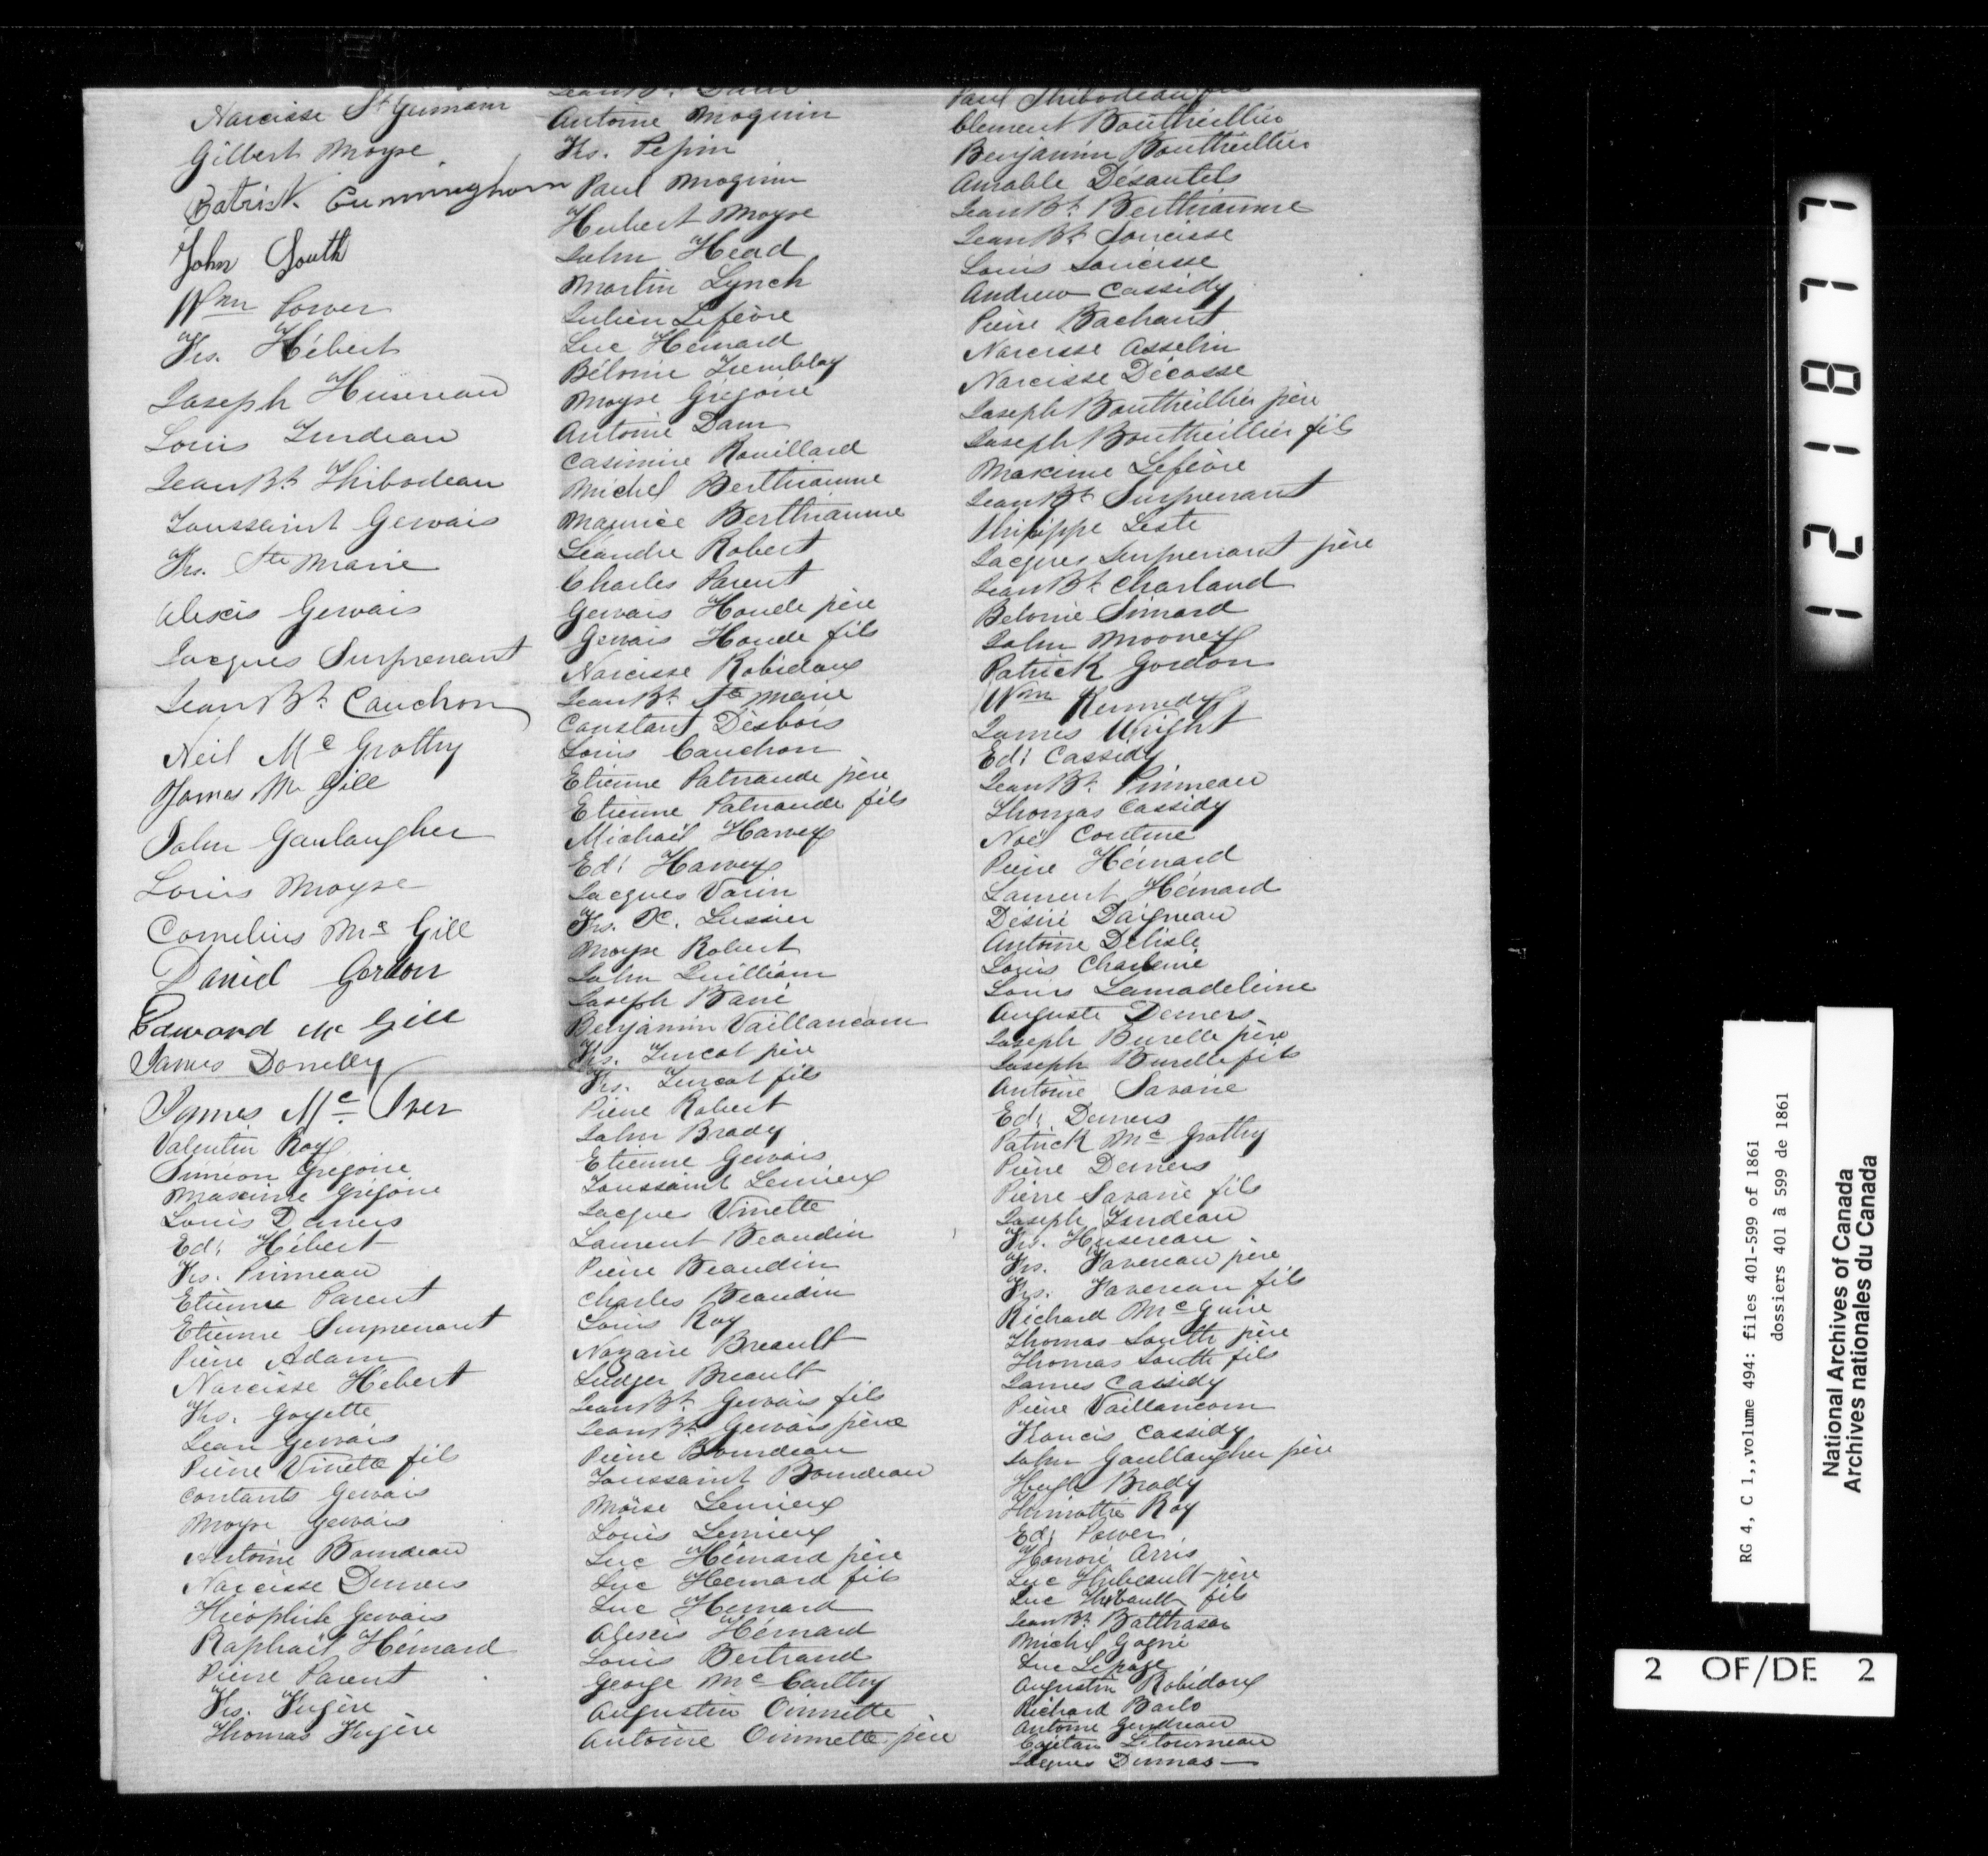 Narcisse St Germain
Gilbert Moyse
Patrick Cunningham
John South
Wm Power
Frs. Hébert
Joseph Husereau
Louis Trudeau
Jean Bt Thibodeau
Toussaint Gervais
Frs. Ste Marie
Alexis Gervais
Jacques Surprenant
Jean Bt. Cauchon
Neil Mc Grothy
James Mc Gill
John Gaulaugher
Louis Moyse
Cornelius Mc Gill
David Gordon
Edward Mc Gill
James Donelly
James Mc Iver
Valentin Roy
Siméon Grégoire
Maxime Grégoire
Louis Demers
Ed. Hébert
Frs. Primeau
Etienne Parent
Etienne Surprenant
Pierre Adam
Narcisse Hébert
Frs. Goyette
Jean Gervais
Pierre Vinette fils
Contants Gervais
Moyse Gervais
Antoine Bourdeau
Narcisse Demers
Théophile Gervais
Raphaël Hémard
Pierre Parent
Frs. Fugère
Thomas Fugère
Jean Bt.
Antoine Moquin
Frs. Pepin
Paul Moquin
Hubert Moyse
John Head
Martin Lynch
Julien Lefèvre
Luc Hémard
Bélonie Tremblay
Moyse Grégoire
Antoine Dam
Casimire Rouillard
Michel Berthiaume
Maurice Berthiaume
Léandre Robert
Charles Parent
Gervais Houde père
Gervais Houde fils
Narcisse Robidoux
Jean Bt. Ste Marie
Constant Desbois
Louis Cauchon
Etienne Patenaude père
Etienne Patenaude fils
Michaël Harvey
Ed. Harvey
Jacques Varin
Frs. X. Lussier
Moyse Robert
John Quilliam
Joseph Barré
Benjamin Vaillancour
Frs. Turcot père
Frs. Turcot fils
Pierre Robert
John Brady
Etienne Gervais
Toussaint Lemieux
Jacques Vinette
Laurent Beaudin
Pierre Beaudin
Charles Beaudin
Louis Roy
Nazaire Breault
Ludger Breault
Jean Bt. Gervais fils
Jean Bt. Gervais père
Pierre Bourdeau
Toussaint Bourdeau
Moïse Lemieux
Louis Lemieux
Luc Hémard père
Luc Hémard fils
Luc Hémard
Alexis Hémard
Louis Bertrand
George Mc Carthy
Augustin Ouimette
Antoine Ouimette père
Paul Thibodeau fils
Clement Boutheillier
Benjamin Bouthellier
Amable Désautels
Jean Bt. Berthiaume
Jean Bt. Sorcisse
Louis Sorcisse
Andrew Cassidy
Pierre Bachant
Narcisse Asselin
Narcisse Décasse
Joseph Boutheillier père
Joseph Bouthellier fils
Maxime Lefèvre
Jean Bt Surprenant
Philippe Leste
Jacques Surprenant père
Jean Bt Charland
Belonie Simard
John Mooney
Patrick Gordon
Wm Kennedy
James Wright
Ed. Cassidy
Jean Bt. Primeau
Thomas Cassidy
Noël Couture
Pierre Hémard
Laurent Hémard
Désiré Daigneau
Antoine Délisle
Louis
Louis Lamadeleine
Auguste Demers
Joseph Burelle père
Joseph Burelle fils
Antoine Savarie
Ed. Demers
Patrick Mc Grothy
Pierre Demers
Pierre Savarie fils
Joseph Trudeau
Frs. Husereau
Frs. Favereau père
Frs. Favereau fils
Richard Mc Guire
Thomas South père
Thomas South fils
James Cassidy
Pierre Vaillancour
Francis Cassidy
John Gaullaugher père
Hugh Brady
Roy
Ed. Power
Honoré Arris
Luc Thibeault père
Luc Thibault fils
Jean Bt. Balthasar
Michel Gagné
Luc Lepage
Augustin Robidoux
Richard Barlo
Antoine Gendreau
Cajetan Létourneau
Jacques Dumas
121877
RG 4, C 1,,volume 494: files 401-599 of 1861
dossiers 401 à 599 de 1861
National Archives of Canada
Archives nationales du Canada
2 OF/DE 2